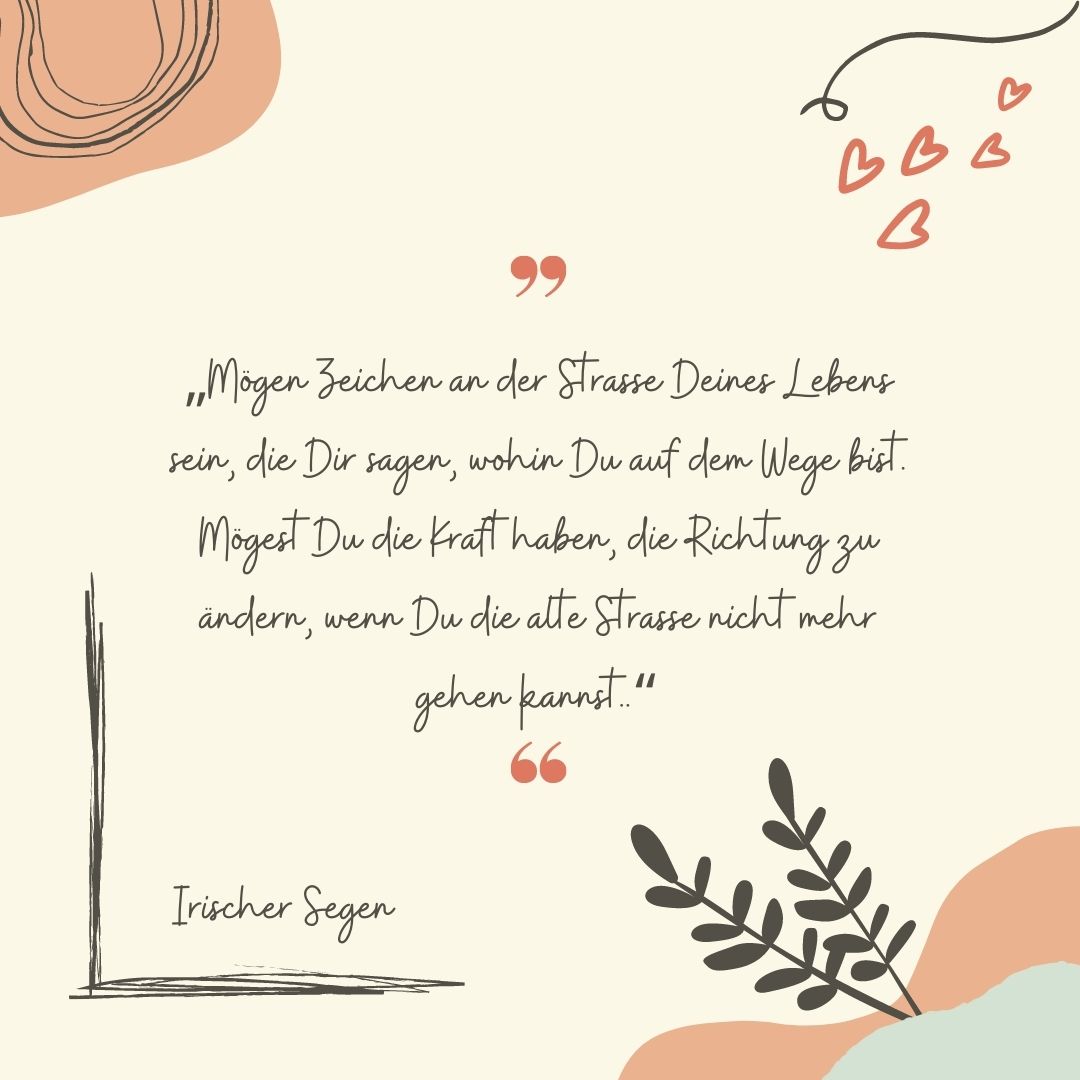 ”
„Mögen Zeichen an der Strasse Deines Lebens
sein, die Dir sagen, wohin Du auf dem Wege bist.
Mögest Du die Kraft haben, die Richtung zu
ändern, wenn Du die alte Strasse nicht mehr
gehen kannst..“
“
Irischer Segen